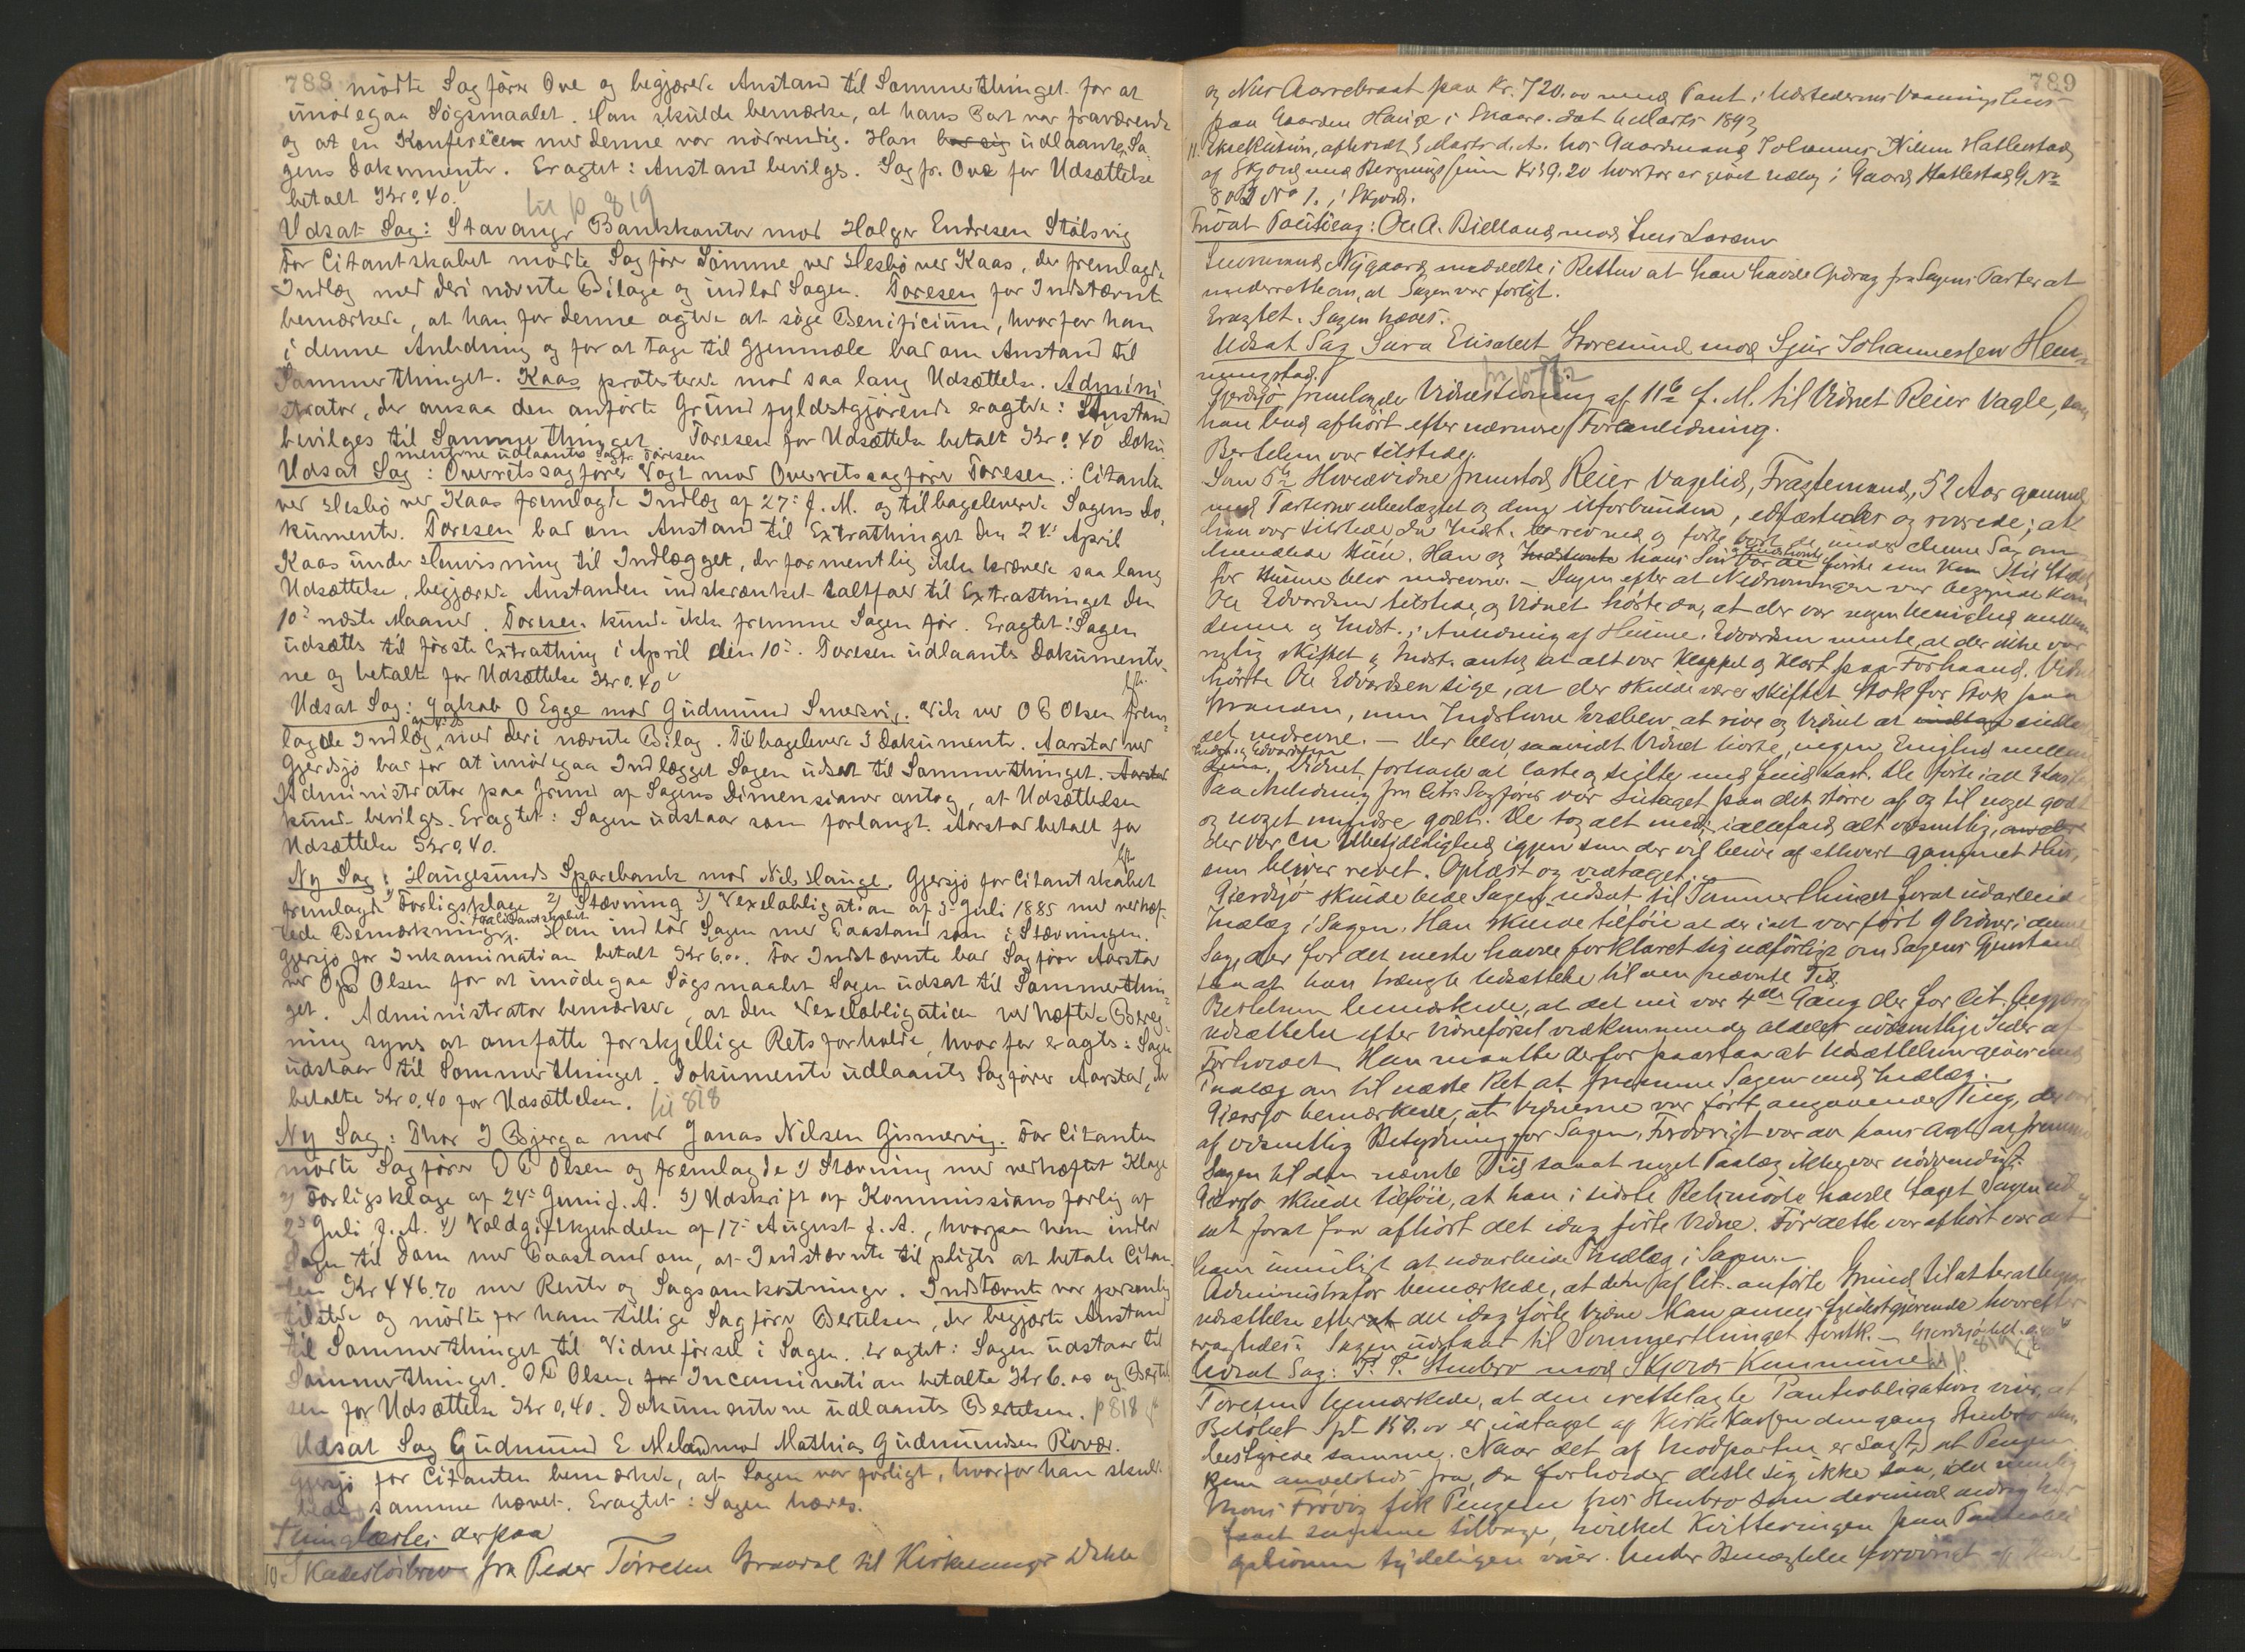 788 mödte Sagförer Ove og begjærede Anstand til Sommerthinget for at
imödegaa Sögsmaalet. Han skulde bemærke, at hans Part var fraværende
og at en Konference med denne var nödvendig. Han bar sig udlaante Sa-
gens Dokumenter. Eragtet: Anstand bevilges. Sagfr. Ove for Udsættelse
betalt Kr 0.40.
til p 819
Udsat Sag: Stavanger Bankkontor mod Holger Endresen Stölsvig
For Citantskabet mödte Sagförer Sömme ved Hesbö ved Kaas, der fremlagde
Indlæg med deri nævnte Bilage og indlod Sagen. Toresen for Indstævnte
bemærkede, at han for denne agtede at söge Benificium, hvorfor han
i denne Anledning og for at tage til Gjenmæle bad om Anstand til
Sommerthinget. Kaas protesterede mod saa lang Udsættelse. Admini
strator, der ansaa den anförte Grund fyldestgjörende eragtede: Anstand
bevilges til Sommerthinget. Toresen for Udsættelse betalt Kr 0.40 Doku
menterne udlaantes Sagfr. Toresen
Udsat Sag: Overretssagförer Vogt mod Overretssagförer Toresen.: Citanten
ved Hesbö ved Kaas fremlagde Indlæg af 27: f. M. og tilbageleverede Sagens Do,
kumenter. Toresen bad om Anstand til Extrathinget den 24: April
Kaas under Henvisning til Indlægget, der formentlig ikke krævede saa lang
Udsættelse, begjærede Anstanden indskrænket ialtfald til Extrathinget den
10: næste Maaned. Toresen kunde ikke fremme Sagen för. Eragtet: Sagen
udsættes til förste Extrathing i April den 10:. Toresen udlaantes Dokumenter-
ne og betalte for Udsættelse Kr 0.40
Udsat Sag: Jakob O Egge mod Gudmund Smersvig. Vik ved O B Olsen frem-
lagde Indlæg med deri nævnte Bilag. Tilbageleverede Dokumenter. Aarstad ved
Gjerdsjö bad for at imödegaa Indlægget Sagen udsat til Sommerthinget. Aarstad
Administrator paa Grund af Sagens Dimensioner antog, at Udsættelsen
kunde bevilges. Eragtet: Sagen udstaar som forlangt. Aarstad betalt for
Udsættelse Kr 0.40.
Ny Sag: Haugesunds Sparebank mod Nils Hauge. Gjersjö for Citantskabet
fremlagde 1) Forligsklage 2) Stævning 3) Vexelobligation af 3: Juli 1885 med vedhæf-
tede Bemærkninger. Han indlod Sagen med Paastand som i Stævningen.
for Citantskabet
Gjersjö for Inkamination betalt Kr 6.00. For Indstævnte bad Sagförer Aarstad
ved O B Olsen for at imödegaa Sögsmaalet Sagen udsat til Sommerthin-
get. Administrator bemærkede, at den Vexelobligation vedhæftede Bereg-
ning synes at omfatte forskjellige Retsforholde, hvorfor eragtes: Sagen
udstaar til Sommerthinget. Dokumenter udlaantes Sagförer Aarstad, der
betalte Kr 0.40 for Udsættelsen. til 818
Ny Sag: Thor J Bjerga mod Jonas Nilsen Gismervig. For Citanten
mödte Sagförer O B Olsen og fremlagde 1) Stævning med vedhæftet Klage
2) Forligsklage af 24: Juni f. A. 3) Udskrift af Kommissions forlig af
2: Juli f. A. 4) Voldgiftkjendelse af 17: August f. A., hvorpaa han indlod
Sagen til Dom med Paastand om, at Indstævnte tilpligtes at betale Citan
ten Kr 446.70 med Renter og Sagsomkostninger. Indstævnte var personlig
tilstede og mödte for ham tillige Sagförer Bertelsen, der begjærte Anstand
til Sommerthinget til Vidneförsel i Sagen. Eragtet: Sagen udstaar til
Sommerthinget. O B Olsen for Incamination betalte Kr 6.00 og Bertel
sen for Udsættelse Kr 0,40. Dokumenterne udlaantes Bertelsen. p 818
Udsat Sag Gudmund E Meland mod Mathias Gudmundsen Rövær.
Gjersjö for Citanten bemærkede, at Sagen var forligt, hvorfor han skulde
bede samme hævet. Eragtet: Sagen hæves.
Thinglæstes derpaa
10. Skadeslösbrev fra Peder Törresen Gravdal til Kirkesanger Dahle
789
og Nils Aarrebraat paa Kr. 720.00 med Pant i Udstederens Vaaningshus
paa Gaarden Hauge i Skaare. dat 4 Marts 1893
11. Exekution, afholdt 3 Marts d. A. hos Gaardmand Johannes Nilsen Hatlestad
af Skjold med Bergningssum Kr 39.20 hvorfor er givet udlæg i Gaard Hatlestad G No
80 B No 1. i Skjold.
Privat Politisag: Ole A. Bielland mod Lars Larsen
Lensmand Nygaard meddelte i Retten at han havde Opdrag fra Sagens Parter at
underrette om, at Sagen var forligt.
Eragtet. Sagen hæves.
Udsat Sag Sara Elisabet Storesund mod Sjur Johannessen Hem-
mingstad.
fra p 772
Gjerdsjö fremlagde Vidnestævning af 11te f. M. til Vidnet Reier Vagle, som
han bad afhört efter nærmere Foranledning.
Bertelsen var tilstede.
Som 5te Hovedvidne fremstod Reier Vaglid, Fragtemand, 52 Aar gammel
med Parterne ubeslægtet og dem uforbunden, edfæstedes og svarede; at
han var tilstede, da Indst. rev ned og förte bort de under denne Sag om-
handlede Huse. Han og Indstævnte hans Sön var de förste som kom til Stede
og Indstævnte
för Husene blev nedrevne. — Dagen efter at Nedrivningen var begyndt kom
Ole Edvardsen tilstede, og Vidnet hörte da, at der var nogen Uenighed mellem
denne og Indst. i Anledning af Husene. Edvardsen mente, at der ikke var
rigtig skiftet og Indst. antog at alt var klappet og klart paa Forhaand. Vidnet
hörte Ole Edvardsen sige, at der skulde være skiftet Stok for Stok paa
Grunden, men Indstævnte vedblev at rive og Vidnet at indtage
det nedrevne. — Der blev, saavidt Vidnet hörte, ingen Enighed mellem
Indst. og Edvardsen
Vidnet fortsatte at laste og seilte med fuld Last. De förte i alt 3 Laster
Paa Anledning fra Cits Sagförer var Lutaget paa det större af og til noget godt
og noget mindre godt. De tog alt med, i alfald alt væsentlig,
Der var en Ubetydelighed igjen som der vil blive af ethvert gammelt Hus,
som bliver revet. Oplæst og vedtaget.
Gjerdsjö skulde bede Sagen udsat til Sommerthinget forat udarbeide
Indlæg i Sagen. Han skulde tilföie at der i alt var fört 9 Vidner i denne
Sag, der for det meste havde forklaret sig udförlig om Sagens Gjenstand
saa at han trængte Udsættelse til den nævnte Tid.
Bertelsen bemærkede, at det nu var 4de Gang der for Cit. begjæres
udsættelse efter Vidneförsel vedkommende aldeles uvæsentlige Sider af
Forholdet. Han maatte derfor paastaa at Udsættelsen gives med
Paalæg om til næste Ret at fremme Sagen med Indlæg.
Gjersjö bemærkede, at Vidnerne var fört angaaende Ting, der var
af væsentlig Betydning for Sagen. Forövrigt var det hans Agt at fremme
Sagen til den nævnte Tid saaat noget Paalæg ikke var nödvendigt.
Gjersjö skulde tilföie, at han i sidste Retsmöde havde taget Sagen ud
sat forat faa afhört det idag förte Vidne. För dette var afhört var det
ham umuligt at udarbeide Indlæg i Sagen.
Administrator bemærkede, at den af Cit. anförte Grund til atter at begjære
udsættelse efter at det idag förte Vidne kan ansees fyldestgjörende hvorefter
eragtedes: Sagen udstaar til Sommerthinget forstk. — Gjerdsjö bet. 0.40
til p. 819
Udsat Sag: F. T. Stubro mod Skjold Kommune
Toresen bemærkede, at den rettelagte Pantobligation viser, at
Belöbet Spd 150.00 er udtaget af Kirkekassen dengang Stubro
bestyrede samme. Naar det af Modparten er sagt, at Pengene
kom andetsteds fra, da forholder dette sig ikke saa, idet nemlig
Mons Frövig fik Pengene hos Stubro som dermed aldrig har
faaet samme tilbage, hvilket Kvitteringen paa Pantobli
gationen tydeligen viser. Under Benægtelse forövrigt af